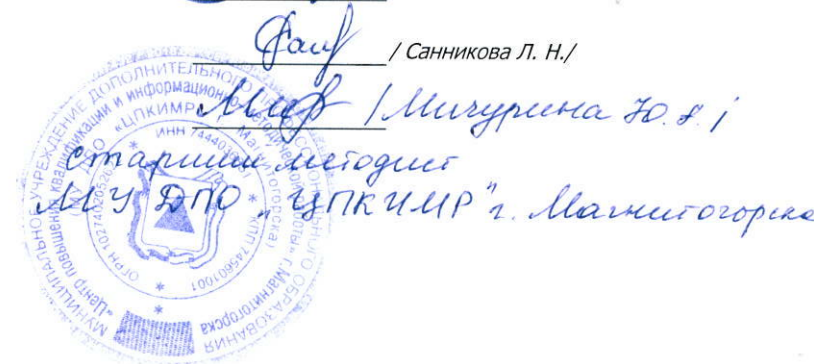 / Санникова Л. Н./
/ Мичурина Ю. А /
старший методист
МУ ДПО „ЦПКИМР" г. Магнитогорска
МУНИЦИПАЛЬНОЕ УЧРЕЖДЕНИЕ ДОПОЛНИТЕЛЬНОГО ПРОФЕССИОНАЛЬНОГО ОБРАЗОВАНИЯ
«Центр повышения квалификации и информационно-методической работы» г. Магнитогорска
«ЦПКИМР» г. Магнитогорска)
ИНН
КПП 745601001
ОГРН